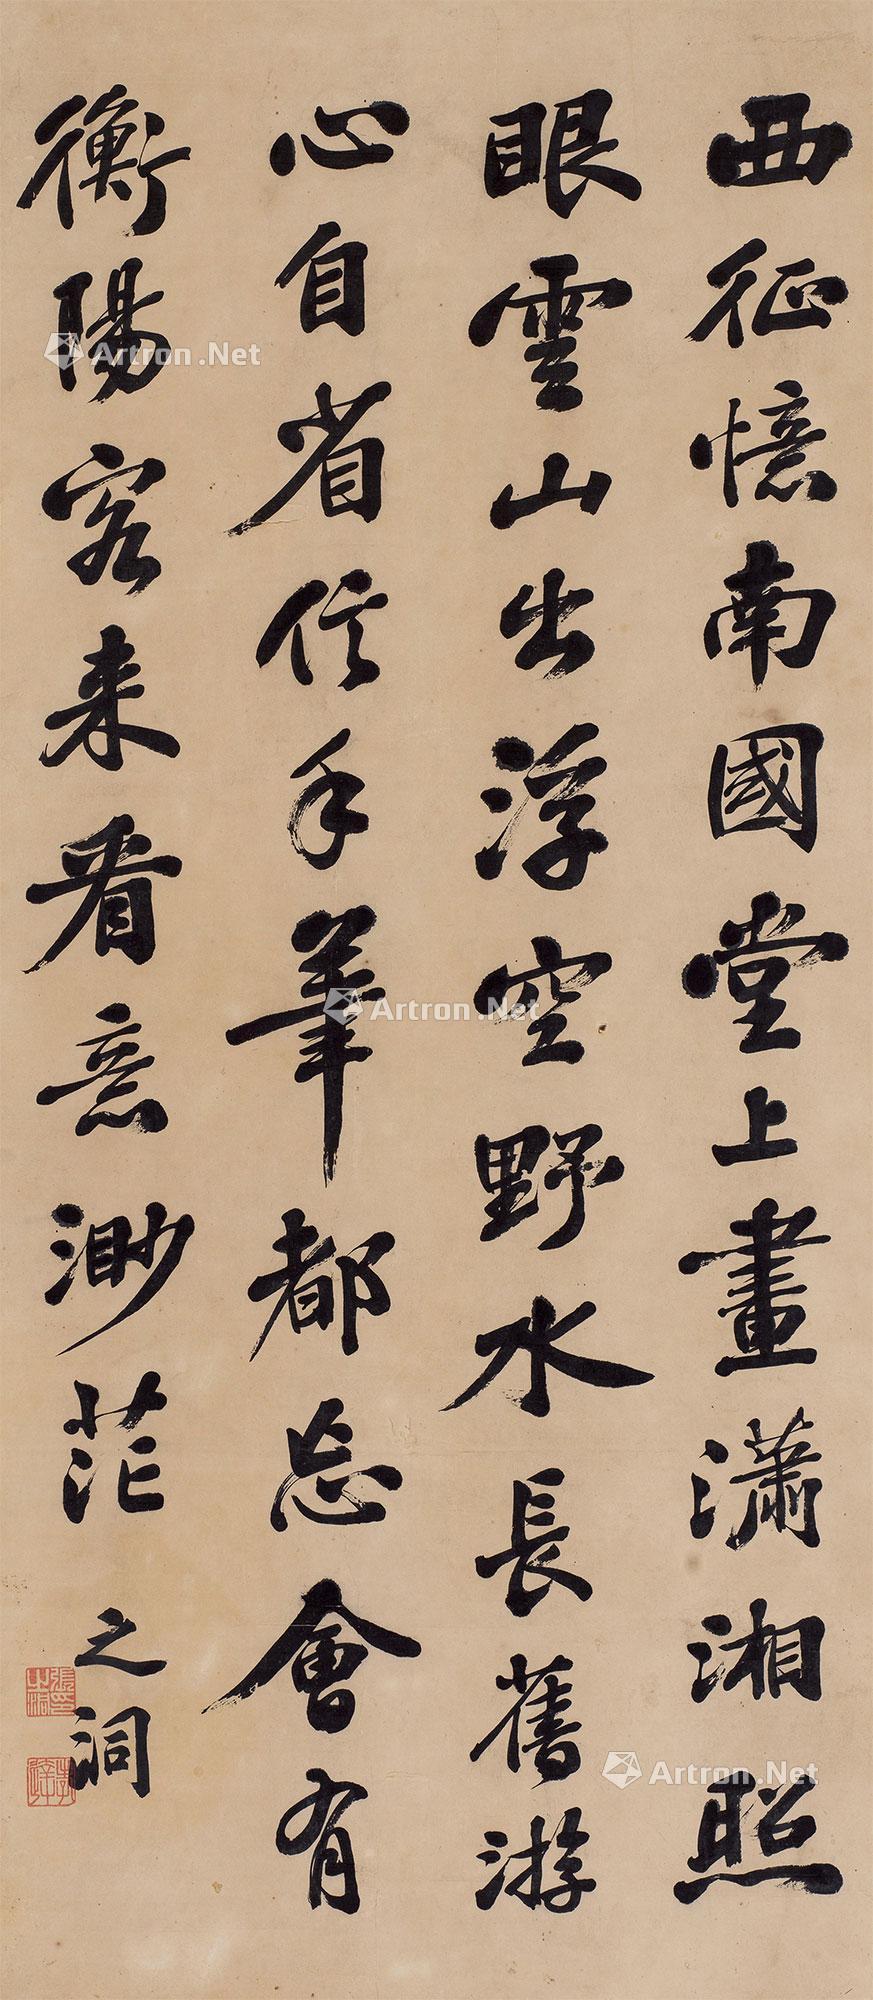 西征憶南國堂上畫瀟湘照
眼雲山出浮空野水長舊游
心自省信手筆都忘會有
衡陽客來看意渺茫
之洞
張之洞印
Artron.Net
Artron.Net
Artron.Net